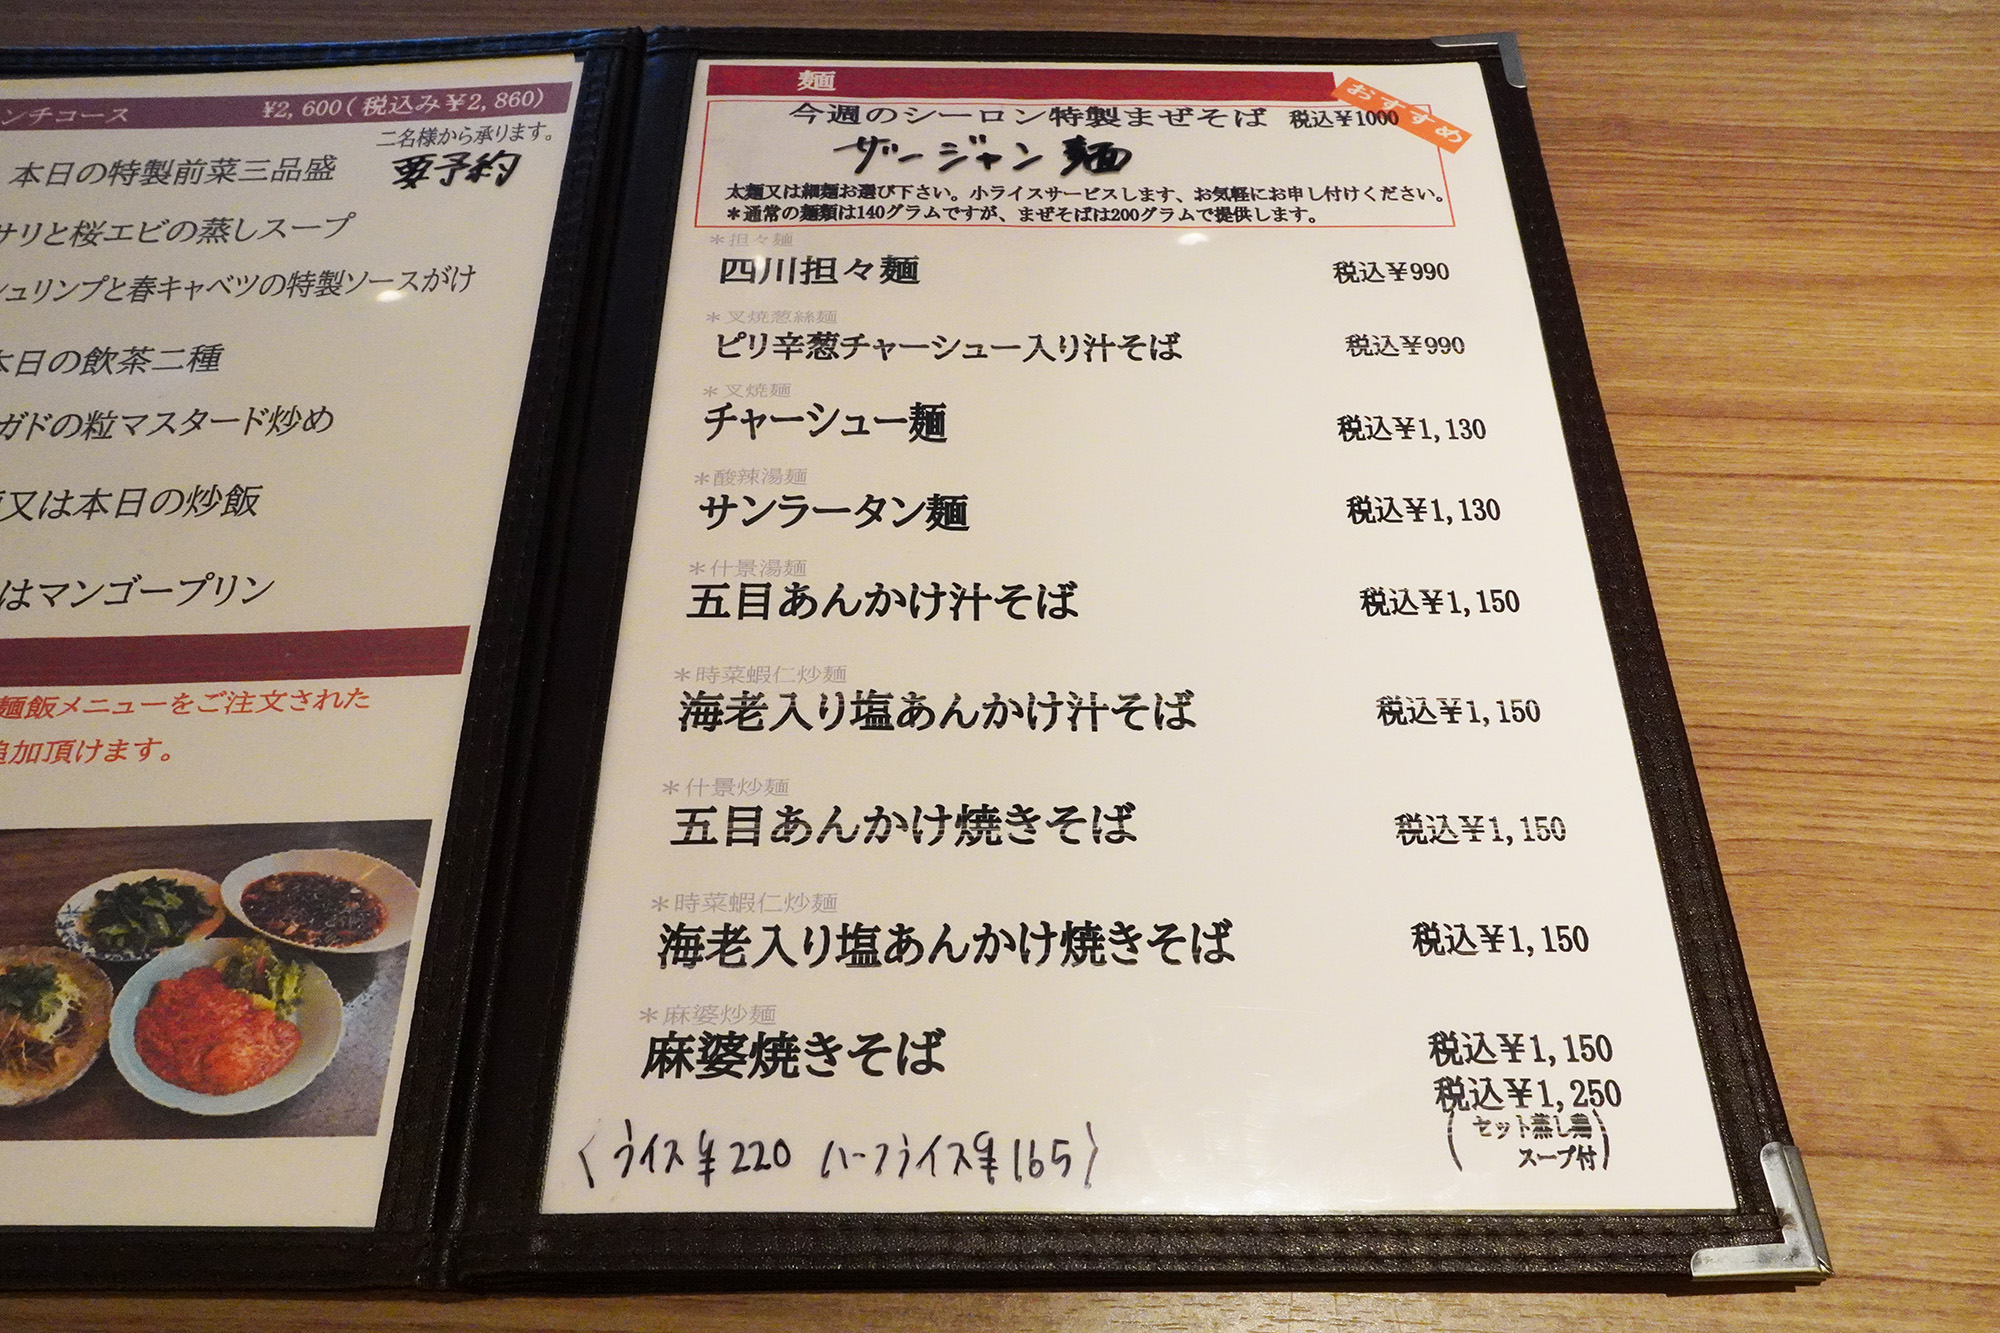 ンチコース ¥2,600(税込み¥2,860)
二名様から承ります。
要予約
本日の特製前菜三品盛
サリと桜エビの蒸しスープ
シュリンプと春キャベツの特製ソースがけ
本日の飲茶二種
ガドの粒マスタード炒め
又は本日の炒飯
はマンゴープリン
麺飯メニューをご注文された
追加頂けます。
麺
おすすめ
今週のシーロン特製まぜそば 税込¥1000
ザージャン麺
太麺又は細麺お選び下さい。小ライスサービスします、お気軽にお申し付けください。
*通常の麺類は140グラムですが、まぜそばは200グラムで提供します。
*担々麺
四川担々麺 税込¥990
*叉焼葱絲麺
ピリ辛葱チャーシュー入り汁そば 税込¥990
*叉焼麺
チャーシュー麺 税込¥1,130
*酸辣湯麺
サンラータン麺 税込¥1,130
*什景湯麺
五目あんかけ汁そば 税込¥1,150
*時菜蝦仁炒麺
海老入り塩あんかけ汁そば 税込¥1,150
*什景炒麺
五目あんかけ焼きそば 税込¥1,150
*時菜蝦仁炒麺
海老入り塩あんかけ焼きそば 税込¥1,150
*麻婆炒麺
麻婆焼きそば 税込¥1,150
税込¥1,250
(セット蒸し鶏
スープ付)
〈ライス¥220 ハーフライス¥165〉